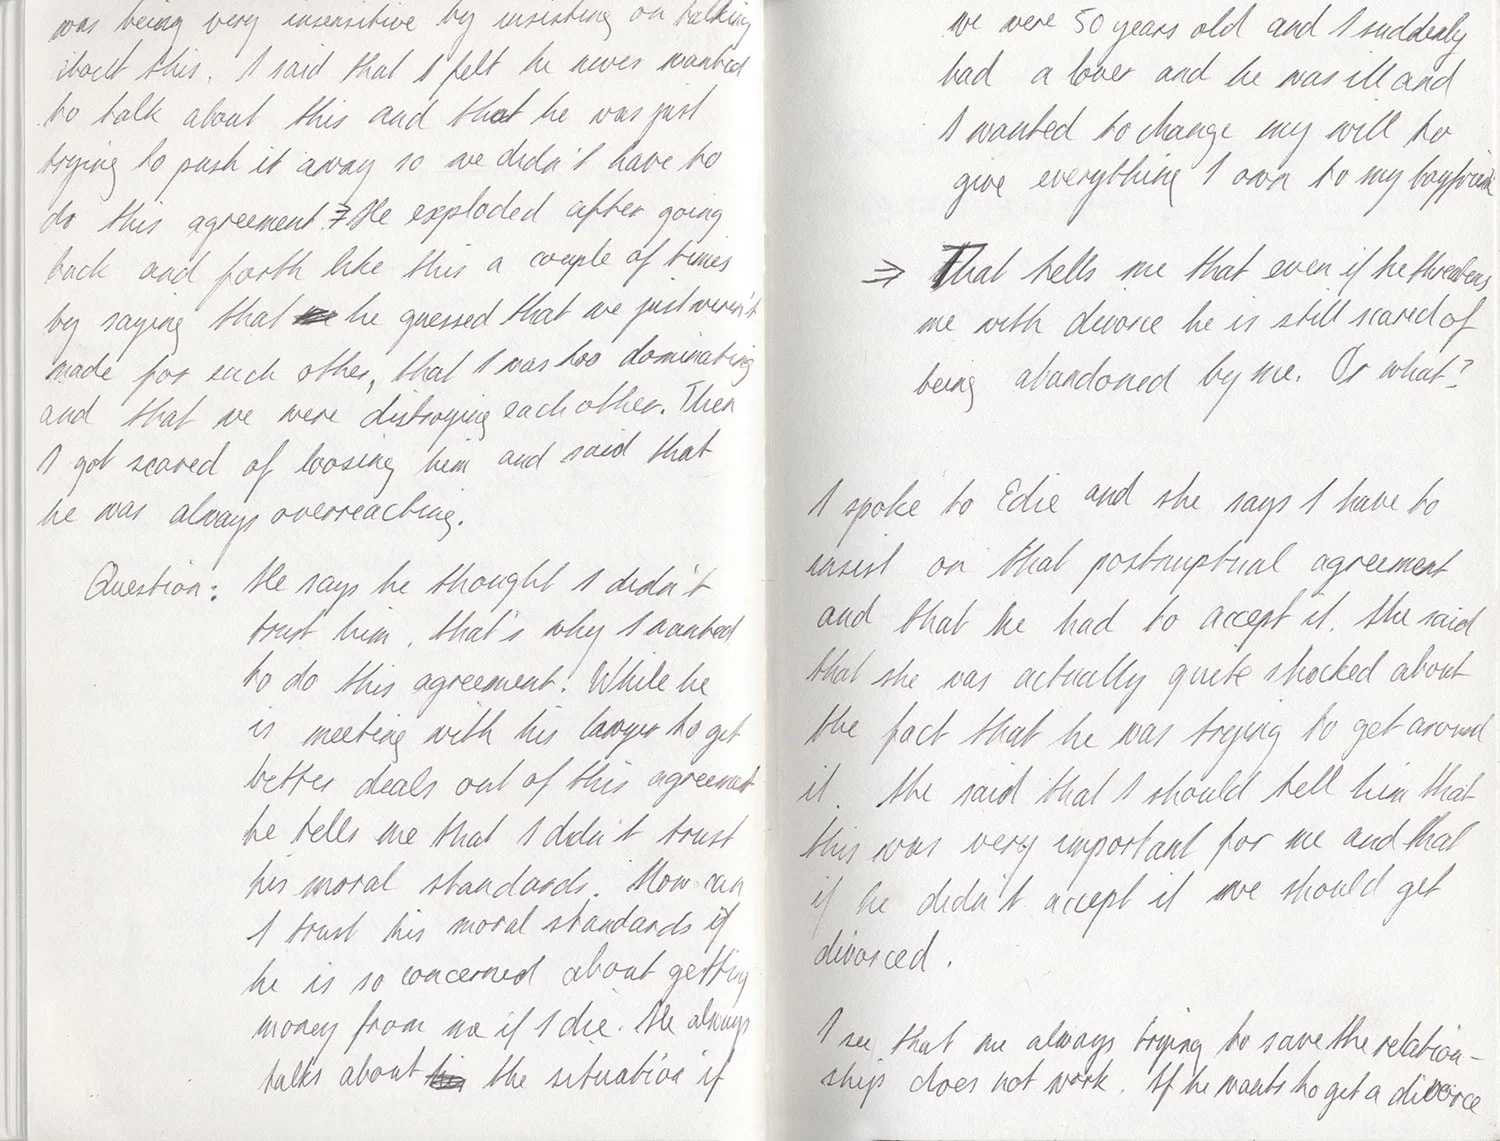 was being very insensitive by insisting on talking
about this. I said that I felt he never wanted
to talk about this and that he was just
trying to push it away so we didn't have to
do this agreement. He exploded after going
back and forth like this a couple of times
by saying that he guessed that we just weren't
made for each other, that I was too dominating
and that we were distroying each other. Then
I got scared of loosing him and said that
he was always overreacting.
Question: He says he thought I didn't
trust him, that's why I wanted
to do this agreement. While he
is meeting with his lawyer to get
better deals out of this agreement
he tells me that I didn't trust
his moral standards. How can
I trust his moral standards if
he is so concerned about getting
money from me if I die. He always
talks about the situation if
we were 50 years old and I suddenly
had a lover and he was ill and
I wanted to change my will to
give everything I own to my boyfriend
⇒ That tells me that even if he threatens
me with divorce he is still scared of
being abandoned by me. Or what?
I spoke to Edie and she says I have to
insist on that postnuptual agreement
and that he had to accept it. She said
that she was actually quite shocked about
the fact that he was trying to get around
it. She said that I should tell him that
this was very important for me and that
if he didn't accept it we should get
divorced.
I see that me always trying to save the relation-
ship does not work. If he wants to get a divorce